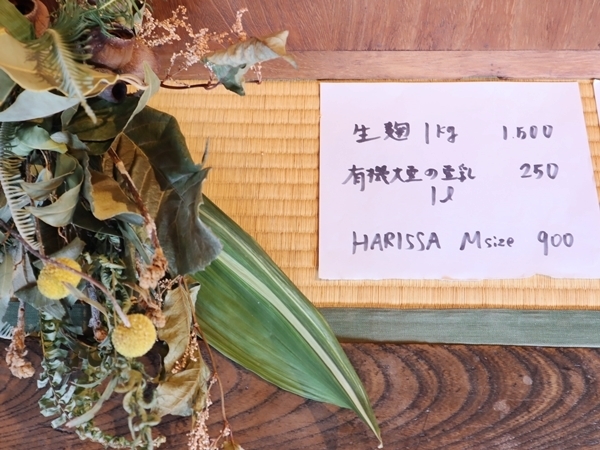 生麹 1kg 1.500
有機大豆の豆乳 250
1ℓ
HARISSA Msize 900